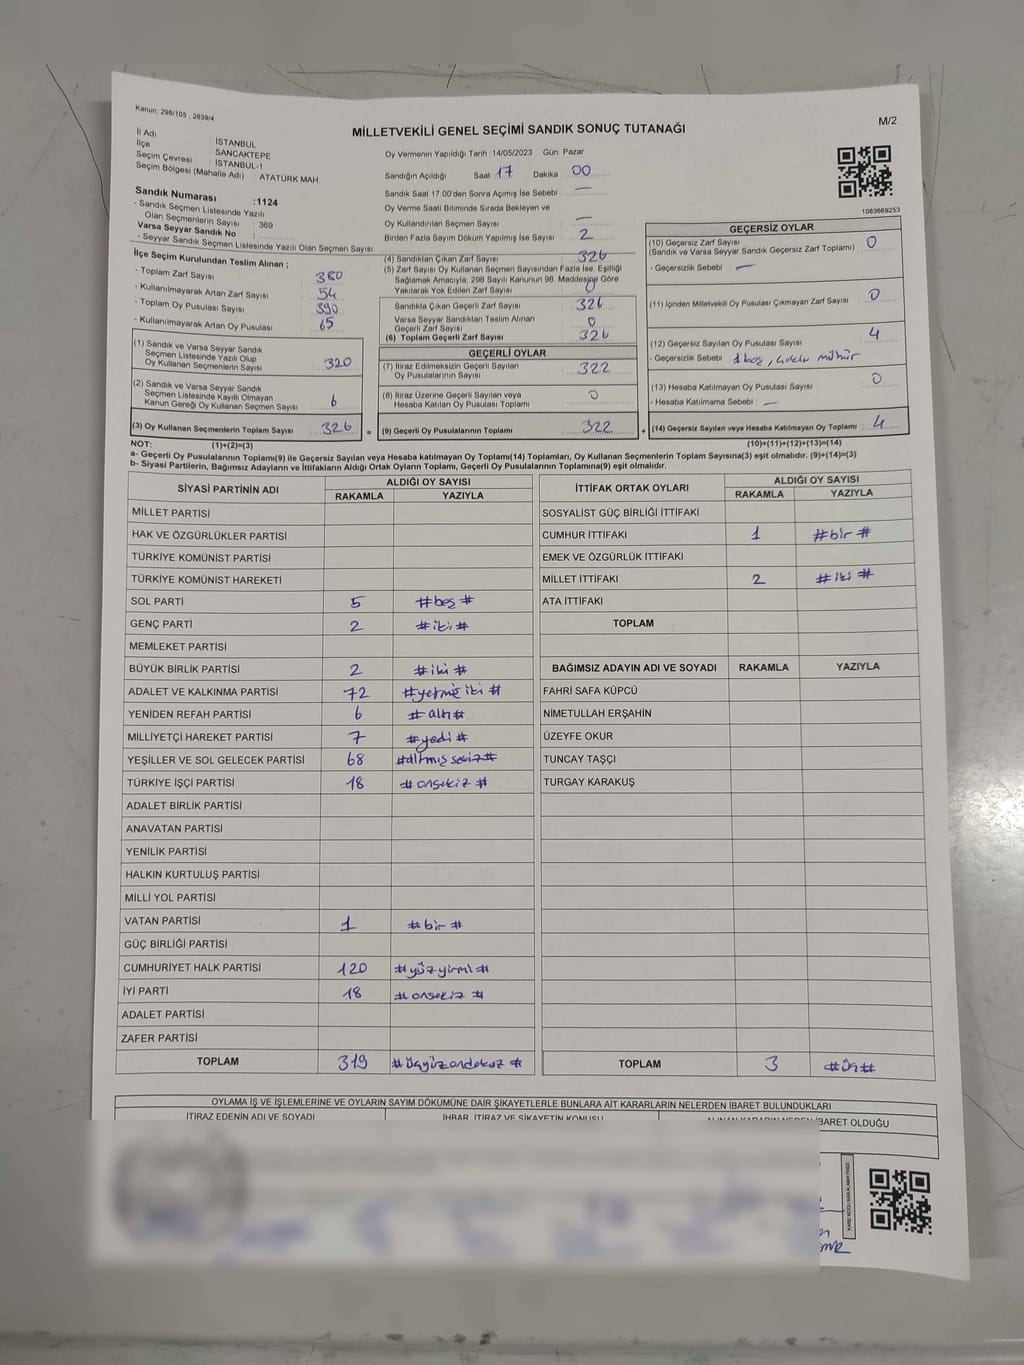 Kanun: 298/105 , 2839/4
MİLLETVEKİLİ GENEL SEÇİMİ SANDIK SONUÇ TUTANAĞI
M/2
İl Adı : İSTANBUL
İlçe : SANCAKTEPE
Seçim Çevresi : İSTANBUL-1
Seçim Bölgesi (Mahalle Adı) : ATATÜRK MAH.
Sandık Numarası :1124
- Sandık Seçmen Listesinde Yazılı
Olan Seçmenlerin Sayısı : 369
Varsa Seyyar Sandık No :
- Seyyar Sandık Seçmen Listesinde Yazılı Olan Seçmen Sayısı:
Oy Vermenin Yapıldığı Tarih :14/05/2023 Gün: Pazar
Sandığın Açıldığı Saat : 17 Dakika : 00
Sandık Saat 17.00'den Sonra Açılmış İse Sebebi : —
Oy Verme Saati Bitiminde Sırada Bekleyen ve
Oy Kullandırılan Seçmen Sayısı : —
Birden Fazla Sayım Döküm Yapılmış İse Sayısı : 2
1083669253
İlçe Seçim Kurulundan Teslim Alınan ;
- Toplam Zarf Sayısı : 380
- Kullanılmayarak Artan Zarf Sayısı : 54
- Toplam Oy Pusulası Sayısı : 390
- Kullanılmayarak Artan Oy Pusulası : 65
(1) Sandık ve Varsa Seyyar Sandık
Seçmen Listesinde Yazılı Olup
Oy Kullanan Seçmenlerin Sayısı : 320
(2) Sandık ve Varsa Seyyar Sandık
Seçmen Listesinde Kayıtlı Olmayan
Kanun Gereği Oy Kullanan Seçmen Sayısı : 6
(3) Oy Kullanan Seçmenlerin Toplam Sayısı : 326
(4) Sandıktan Çıkan Zarf Sayısı : 326
(5) Zarf Sayısı Oy Kullanan Seçmen Sayısından Fazla İse, Eşitliği
Sağlamak Amacıyla, 298 Sayılı Kanunun 98. Maddesine Göre
Yakılarak Yok Edilen Zarf Sayısı : 0
Sandıkta Çıkan Geçerli Zarf Sayısı : 326
Varsa Seyyar Sandıktan Teslim Alınan
Geçerli Zarf Sayısı : 0
(6) Toplam Geçerli Zarf Sayısı : 326
GEÇERLİ OYLAR
(7) İtiraz Edilmeksizin Geçerli Sayılan
Oy Pusulalarının Sayısı : 322
(8) İtiraz Üzerine Geçerli Sayılan veya
Hesaba Katılan Oy Pusulası Toplamı : 0
= (9) Geçerli Oy Pusulalarının Toplamı : 322
GEÇERSİZ OYLAR
(10) Geçersiz Zarf Sayısı
(Sandık ve Varsa Seyyar Sandık Geçersiz Zarf Toplamı) : 0
- Geçersizlik Sebebi : —
(11) İçinden Milletvekili Oy Pusulası Çıkmayan Zarf Sayısı : 0
(12) Geçersiz Sayılan Oy Pusulası Sayısı : 4
- Geçersizlik Sebebi : 1 boş, mühür
(13) Hesaba Katılmayan Oy Pusulası Sayısı : 0
- Hesaba Katılmama Sebebi : —
+ (14) Geçersiz Sayılan veya Hesaba Katılmayan Oy Toplamı : 4
NOT: (1)+(2)=(3) (10)+(11)+(12)+(13)=(14)
a- Geçerli Oy Pusulalarının Toplamı(9) ile Geçersiz Sayılan veya Hesaba katılmayan Oy Toplamı(14) Toplamları, Oy Kullanan Seçmenlerin Toplam Sayısına(3) eşit olmalıdır. (9)+(14)=(3)
b- Siyasi Partilerin, Bağımsız Adayların ve İttifakların Aldığı Ortak Oyların Toplamı, Geçerli Oy Pusulalarının Toplamına(9) eşit olmalıdır.
SİYASİ PARTİNİN ADI ALDIĞI OY SAYISI
RAKAMLA YAZIYLA
MİLLET PARTİSİ
HAK VE ÖZGÜRLÜKLER PARTİSİ
TÜRKİYE KOMÜNİST PARTİSİ
TÜRKİYE KOMÜNİST HAREKETİ
SOL PARTİ 5 #beş#
GENÇ PARTİ 2 #iki#
MEMLEKET PARTİSİ
BÜYÜK BİRLİK PARTİSİ 2 #iki#
ADALET VE KALKINMA PARTİSİ 72 #yetmiş iki#
YENİDEN REFAH PARTİSİ 6 #altı#
MİLLİYETÇİ HAREKET PARTİSİ 7 #yedi#
YEŞİLLER VE SOL GELECEK PARTİSİ 68 #altmış sekiz#
TÜRKİYE İŞÇİ PARTİSİ 18 #onsekiz#
ADALET BİRLİK PARTİSİ
ANAVATAN PARTİSİ
YENİLİK PARTİSİ
HALKIN KURTULUŞ PARTİSİ
MİLLİ YOL PARTİSİ
VATAN PARTİSİ 1 #bir#
GÜÇ BİRLİĞİ PARTİSİ
CUMHURİYET HALK PARTİSİ 120 #yüzyirmi#
İYİ PARTİ 18 #onsekiz#
ADALET PARTİSİ
ZAFER PARTİSİ
TOPLAM 319 #üçyüzondokuz#
İTTİFAK ORTAK OYLARI ALDIĞI OY SAYISI
RAKAMLA YAZIYLA
SOSYALİST GÜÇ BİRLİĞİ İTTİFAKI
CUMHUR İTTİFAKI 1 #bir#
EMEK VE ÖZGÜRLÜK İTTİFAKI
MİLLET İTTİFAKI 2 #iki#
ATA İTTİFAKI
TOPLAM
BAĞIMSIZ ADAYIN ADI VE SOYADI RAKAMLA YAZIYLA
FAHRİ SAFA KÜPCÜ
NİMETULLAH ERŞAHİN
ÜZEYFE OKUR
TUNCAY TAŞÇI
TURGAY KARAKUŞ
TOPLAM 3 #üç#
OYLAMA İŞ VE İŞLEMLERİNE VE OYLARIN SAYIM DÖKÜMÜNE DAİR ŞİKAYETLERLE BUNLARA AİT KARARLARIN NELERDEN İBARET BULUNDUKLARI
İTİRAZ EDENİN ADI VE SOYADI İHBAR, İTİRAZ VE ŞİKAYETİN KONUSU ALINAN KARARIN NEDEN İBARET OLDUĞU